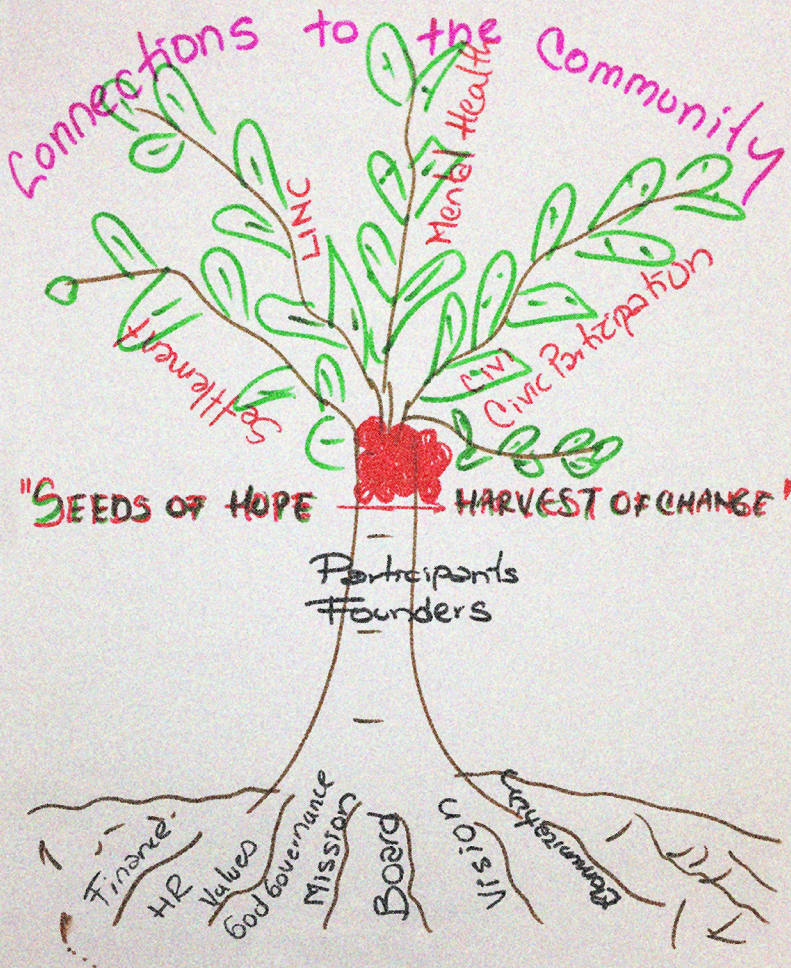 Connections to the Community
LINC
Mental Health
Settlement
Civi
Civic Participation
"SEEDS OF HOPE HARVEST OF CHANGE"
Participants
Founders
Finance
HR
Values
God Governance
Mission
Board
Vision
Communication